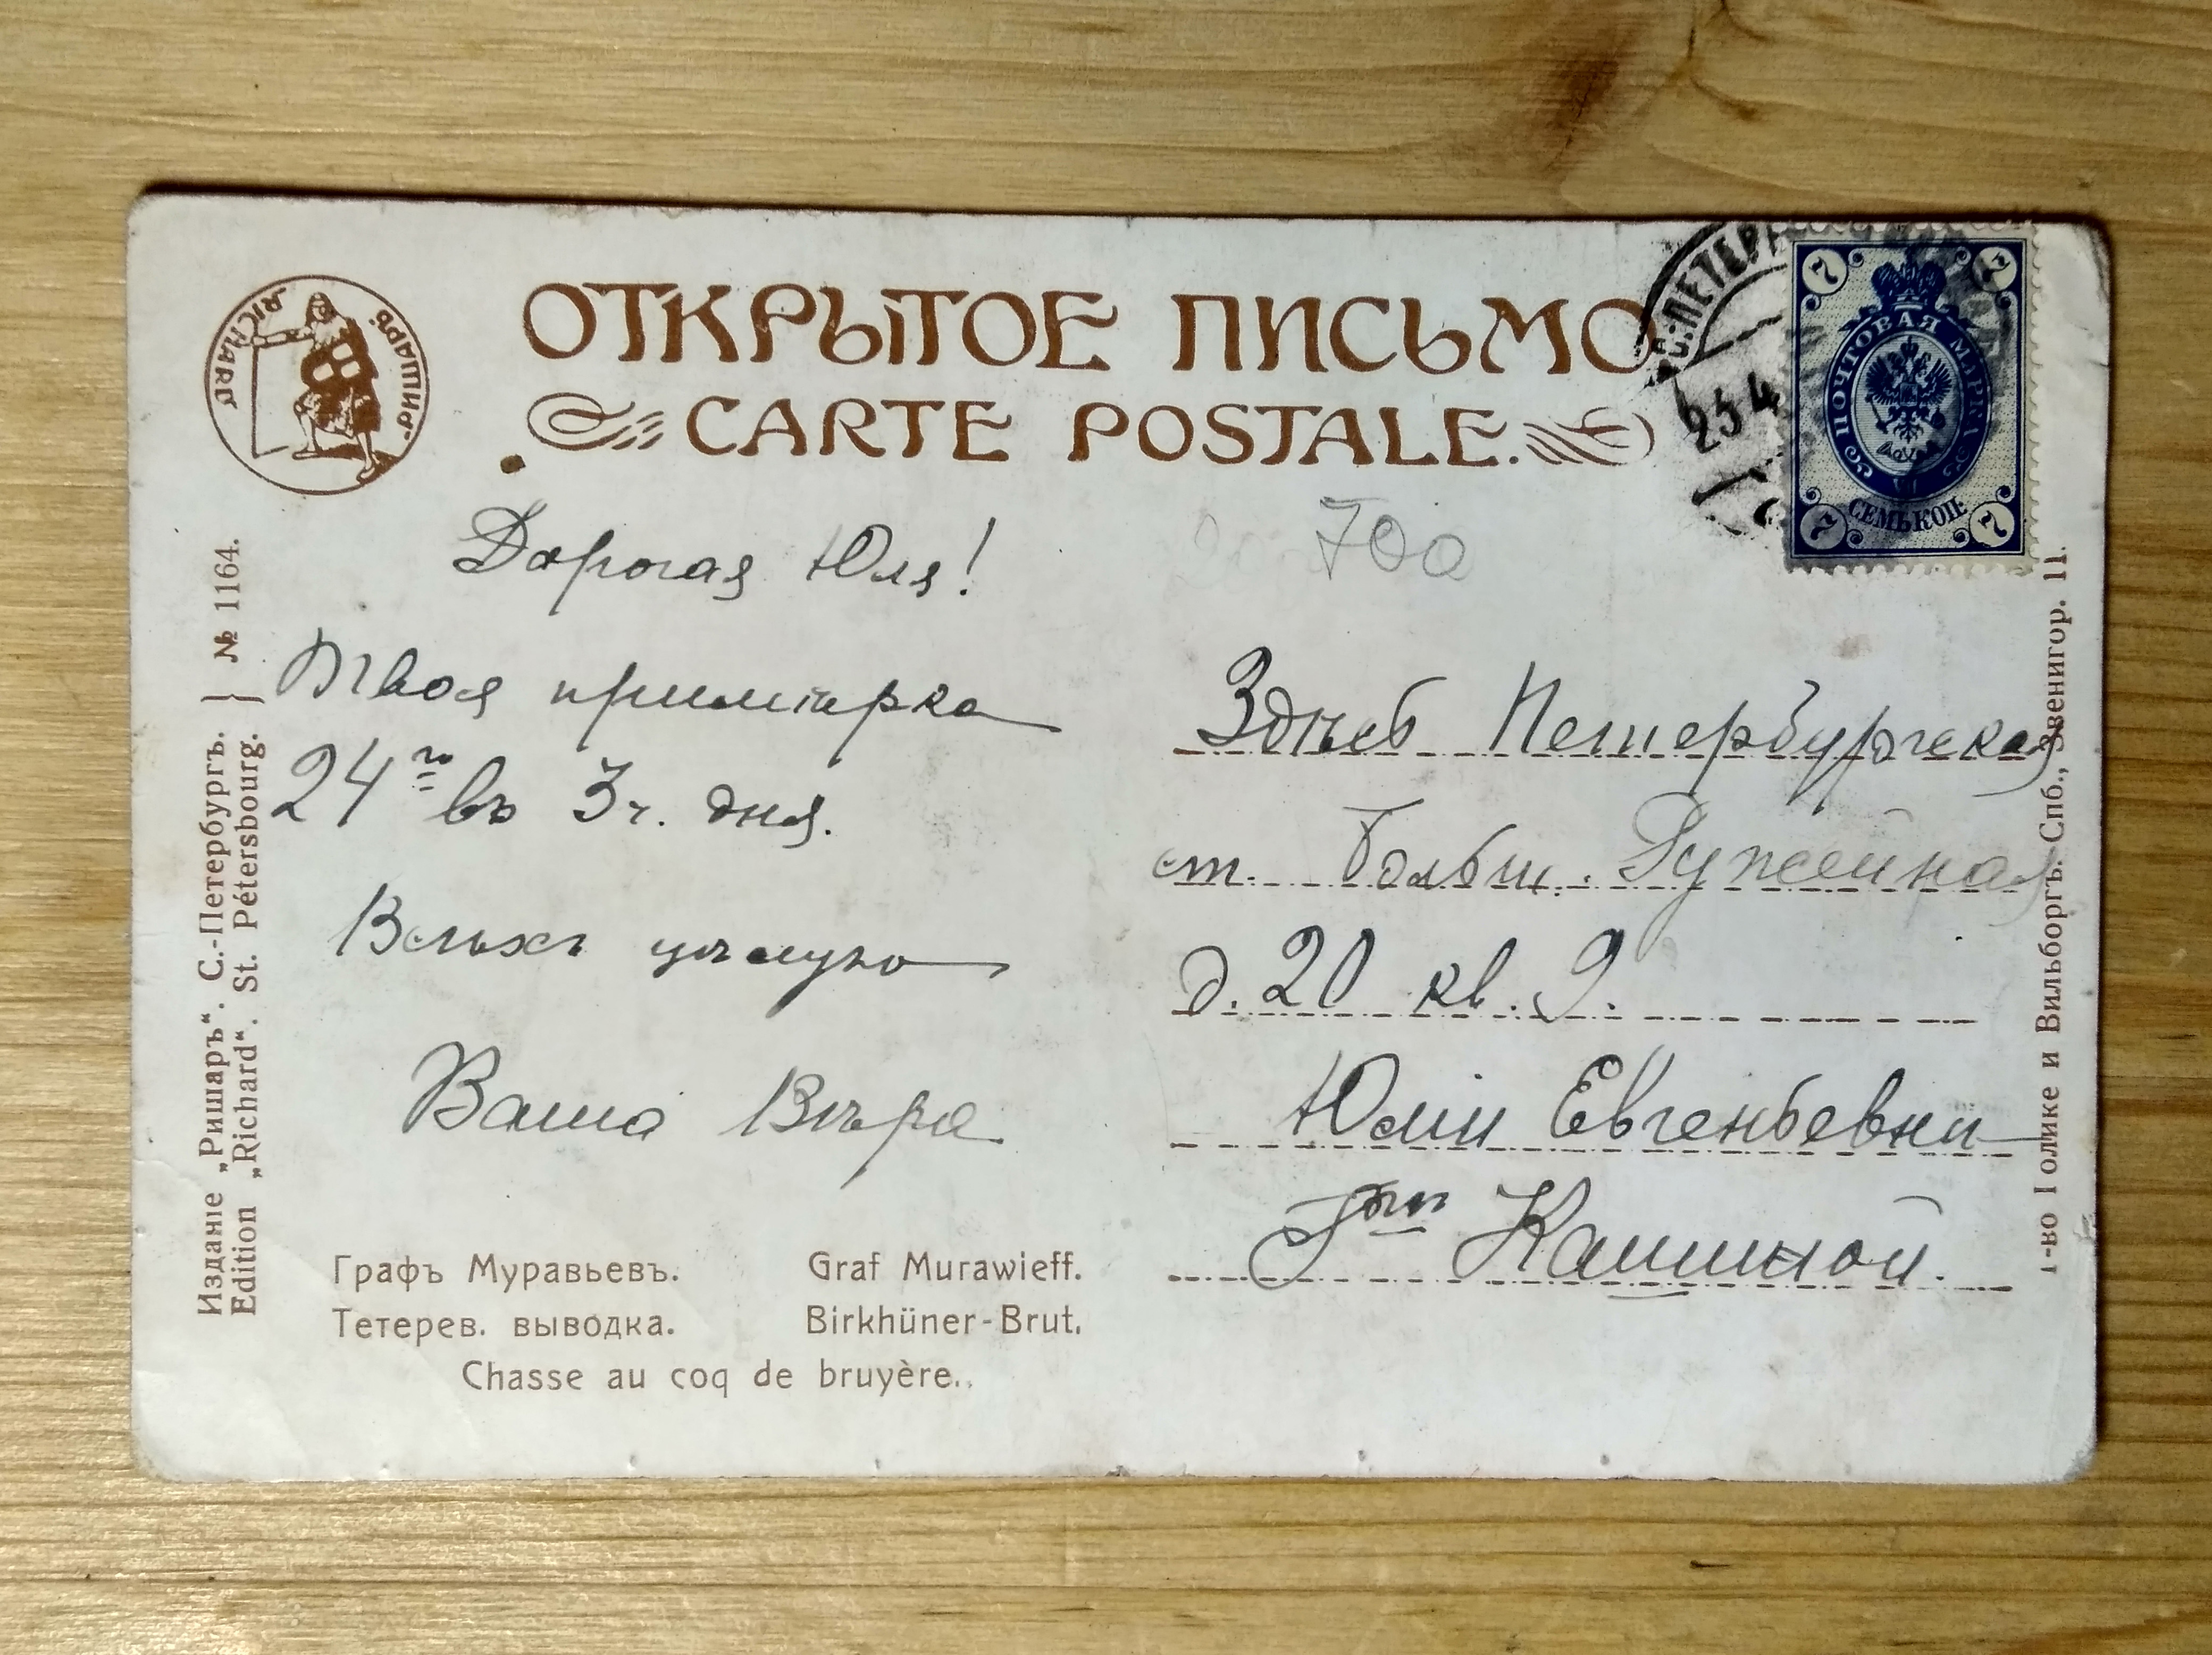 ОТКРЫТОЕ ПИСЬМО
CARTE POSTALE.
RICHARD
РИШАРЪ
С.-ПЕТЕРБ
ПОЧТОВАЯ МАРКА
СЕМЬ КОП.
7 7
7 7
700
Дорогая Юля!
Твоя примѣрка
24го въ 3 ч. дня.
Всѣхъ цѣлую
Ваша Вѣра
Здѣсь Петербургская
ст. Больш. Ружейная
д. 20 кв. 9.
Юліи Евгеньевни
Гжи Кашиной.
Графъ Муравьевъ.
Тетерев. выводка.
Graf Murawieff.
Birkhüner-Brut.
Chasse au coq de bruyère.
Изданіе „Ришаръ“. С.-Петербургъ.
Edition „Richard“. St. Pétersbourg.
№ 1164.
Т-во Голике и Вильборгъ. Спб., Звенигор. 11.